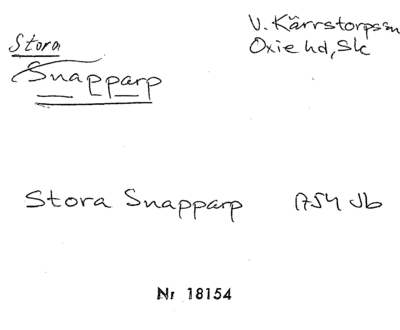 Stora
Snapparp
V. Kärrstorps sn
Oxie hd, Sk
Stora Snapparp 1754 Jb
Nr 18154